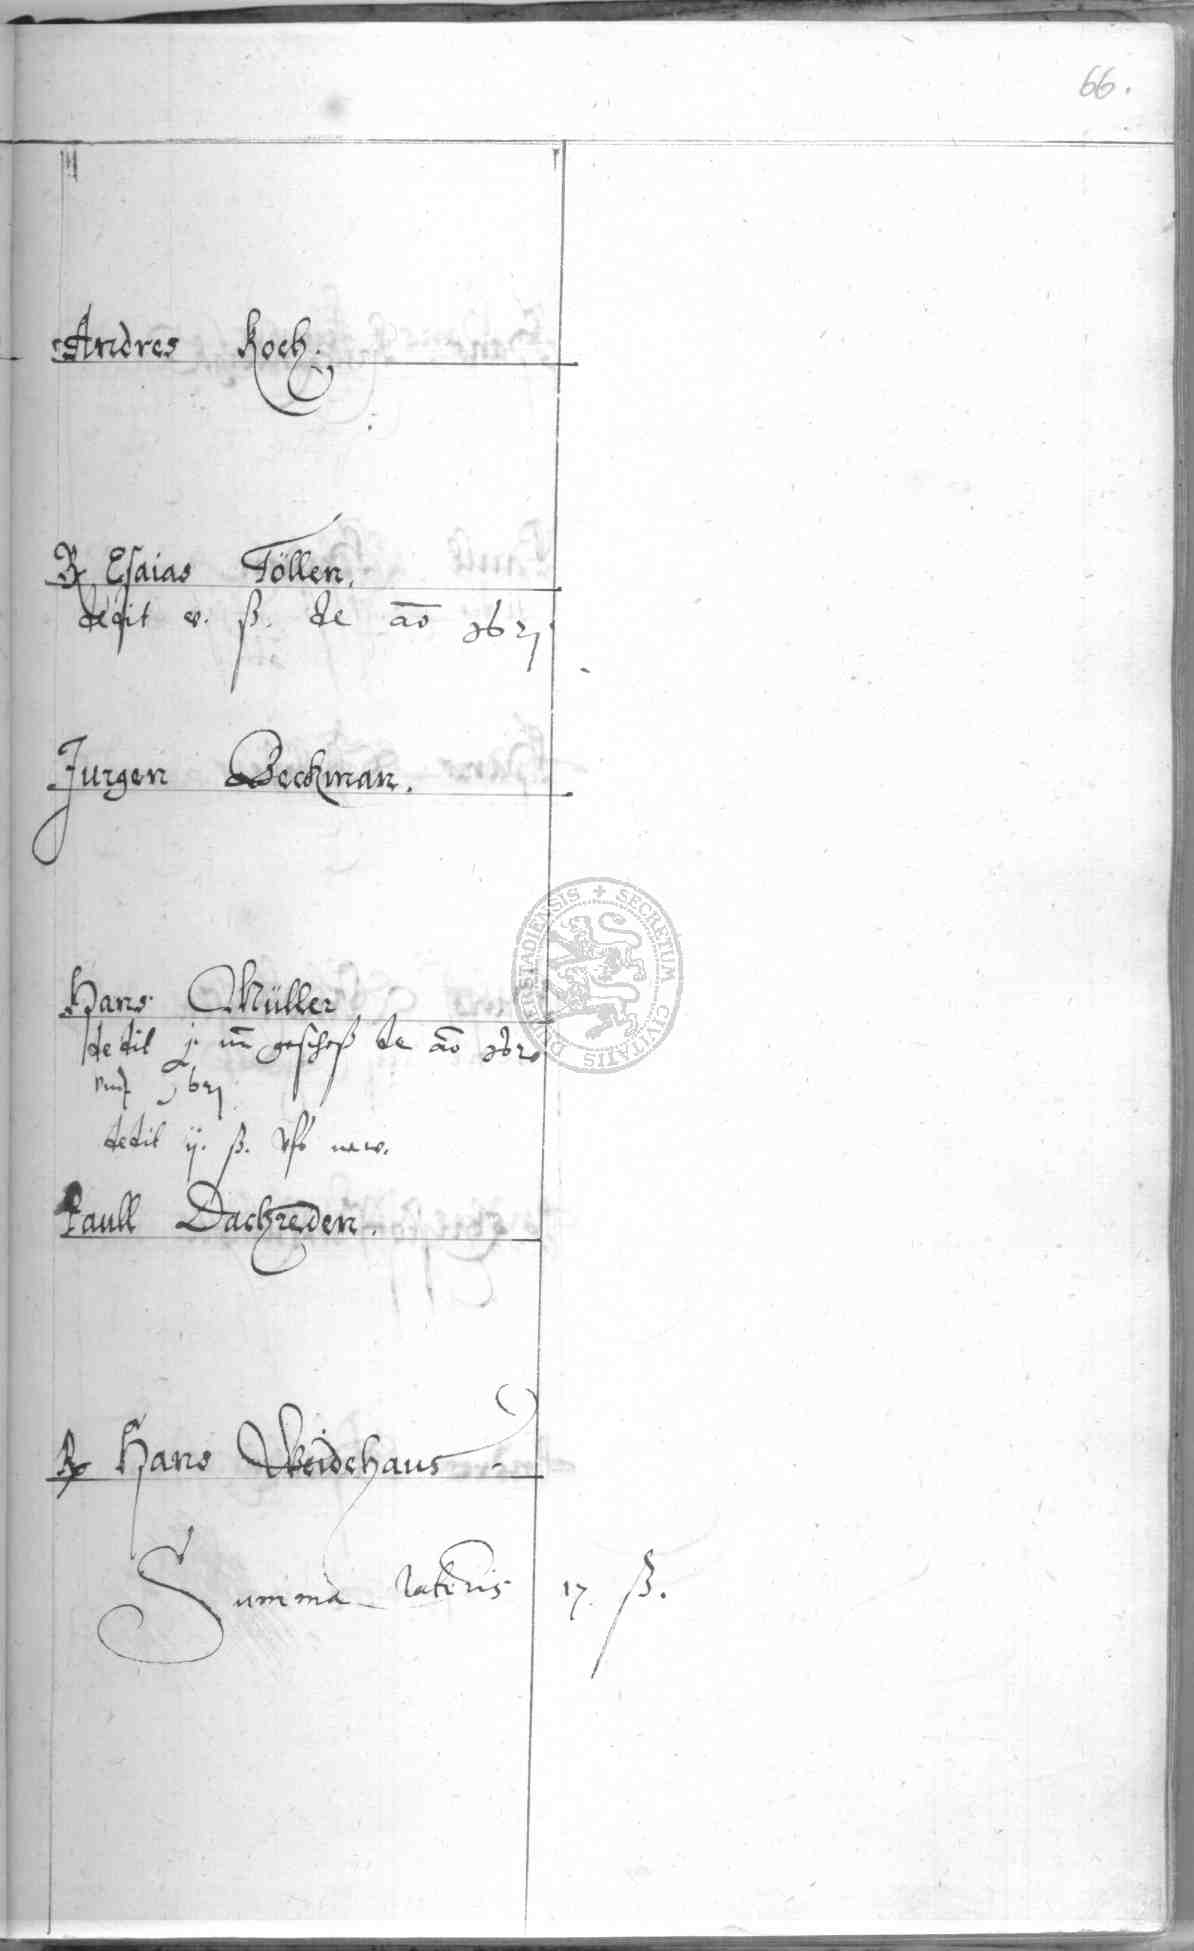 66.
Andres Koch.
R Esaias Töllen.
dedit v. ß. de ao 1621
Jurgen Beckman.
Hans Müller
dedit j. geschoß de ao 1620
und 1621
dedit ij. ß. vfs new.
Paull Dachreden.
R Hans Weidehaus
Summa lateris 17. ß.
SECRETUM CIVITATIS DUDERSTADIENSIS